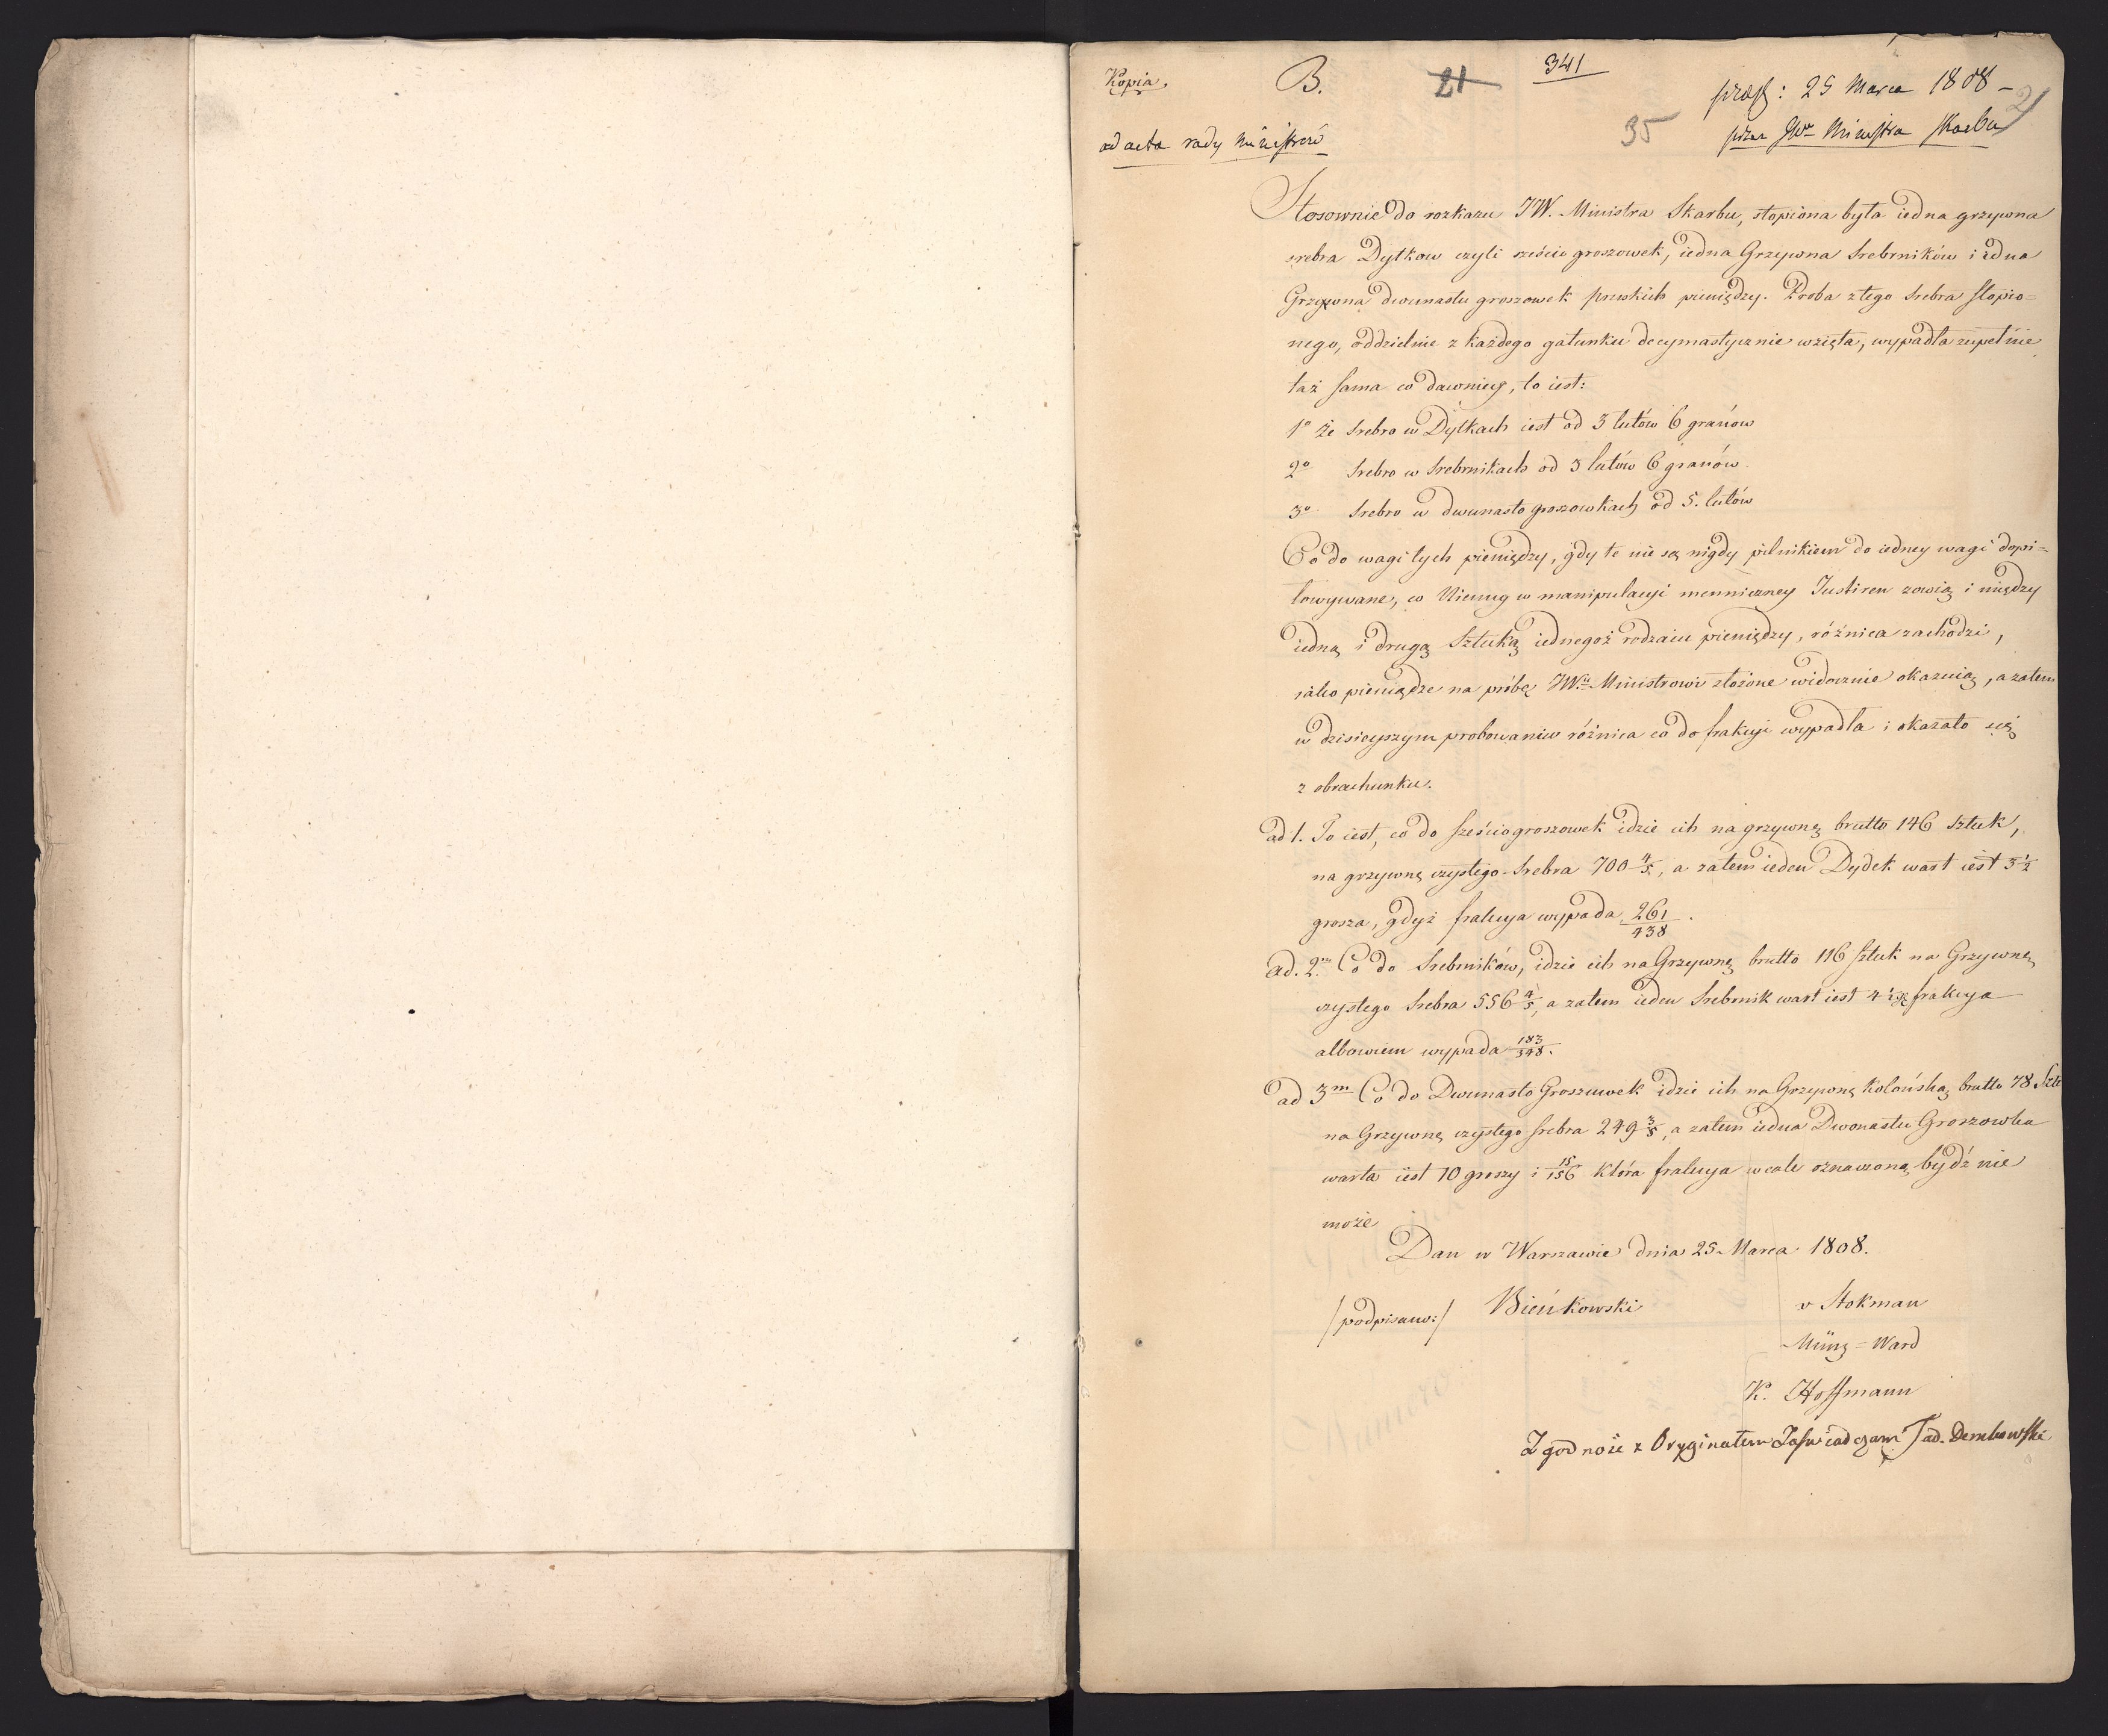 Kopia.
B.
21
341
præs: 25 Marca 1808 –
21
35
przez JWo Ministra Skarbu
ad acta rady Ministrów
Stosownie do rozkazu JW. Ministra Skarbu, stopiona była iedna grzywna
srebra Dytkow czyli sześcio groszowek, iedna Grzywna Srebrników i iedna
Grzywna dwunastu groszowek pruskich pieniędzy. Proba z tego Srebra stopio=
nego, oddzielnie z każdego gatunku docymastycznie wzięta, wypadła zupełnie
taż sama co dawniey, to iest:
1o że Srebro w Dytkach iest od 3 lutów 6 granów
2o Srebro w Srebrnikach od 3 lutów 6 granów.
3o Srebro w dwunasto groszowkach od 5. lutów
Co do wagi tych pieniędzy, gdy te nie są nigdy pilnikiem do iedney wagi dopi=
łowywane, co Niemcy w manipulacyi menniczney Justiren zowią i między
iedną i drugą Sztuką iednegoż rodzaiu pieniędzy, różnica zachodzi,
iako pieniądze na próbę JW. Ministrowi złożone widocznie okazuią, a zatem
w dzisieyszym probowaniu różnica co do frakcyi wypadła i okazało się
z obrachunku.
ad 1. To iest, co do sześciogroszowek idzie ich na grzywnę brutto 146 sztuk,
na grzywnę czystego Srebra 700 4/5, a zatem ieden Dydek wart iest 3 1/2
grosza, gdyż frakcya wypada 261/438.
ad. 2m Co do Srebrników, idzie ich na Grzywnę brutto 116 sztuk na Grzywnę
czystego Srebra 556 4/5, a zatem ieden Srebrnik wart iest 4 1/2 frakcya
albowiem wypada 183/348.
ad 3m Co do Dwunasto Groszuwek idzie ich na Grzywnę Kolońską brutto 78 Sztu
na Grzywnę czystego srebra 249 3/5, a zatem iedna Dwonastu Groszowka
warta iest 10 groszy i 15/156 która frakcya wcale oznaczoną bydź nie
może
Dan w Warszawie dnia 25 Marca 1808.
/podpisano:/ Bieńkowski
v Stokman
Münz = Ward
K. Hoffmann
Zgodność z Oryginałem Zaświadczam Tad. Dembowski